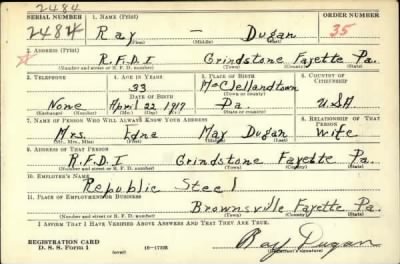 2484
SERIAL NUMBER 1. NAME (Print) ORDER NUMBER
2484 Ray — Dugan 35
(First) (Middle) (Last)
2. ADDRESS (Print)
R.F.D.I Grindstone Fayette Pa.
(Number and street or R. F. D. number) (Town) (County) (State)
3. TELEPHONE 4. AGE IN YEARS 5. PLACE OF BIRTH 6. COUNTRY OF CITIZENSHIP
33 McClellandtown
DATE OF BIRTH (Town or county)
None April 22 1917 Pa. USA
(Exchange) (Number) (Mo.) (Day) (Yr.) (State or country)
7. NAME OF PERSON WHO WILL ALWAYS KNOW YOUR ADDRESS 8. RELATIONSHIP OF THAT PERSON
Mrs. Edna May Dugan Wife
(Mr., Mrs., Miss) (First) (Middle) (Last)
9. ADDRESS OF THAT PERSON
R.F.D.I Grindstone Fayette Pa.
(Number and street or R. F. D. number) (Town) (County) (State)
10. EMPLOYER'S NAME
Republic Steel
11. PLACE OF EMPLOYMENT OR BUSINESS
Brownsville Fayette Pa.
(Number and street or R. F. D. number) (Town) (County) (State)
I AFFIRM THAT I HAVE VERIFIED ABOVE ANSWERS AND THAT THEY ARE TRUE.
REGISTRATION CARD
D. S. S. Form 1 (over) 16—17105 Ray Dugan
(Registrant's signature)